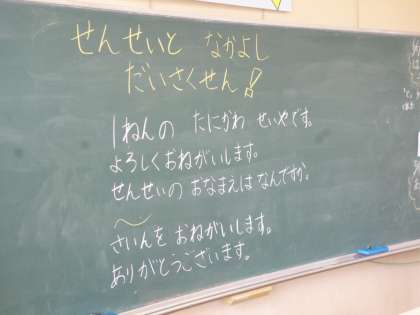 せんせいと なかよし
だいさくせん!
1ねんの たにかわ せいやです。
よろしくおねがいします。
せんせいの おなまえは なんですか。
さいんを おねがいします。
ありがとうございます。